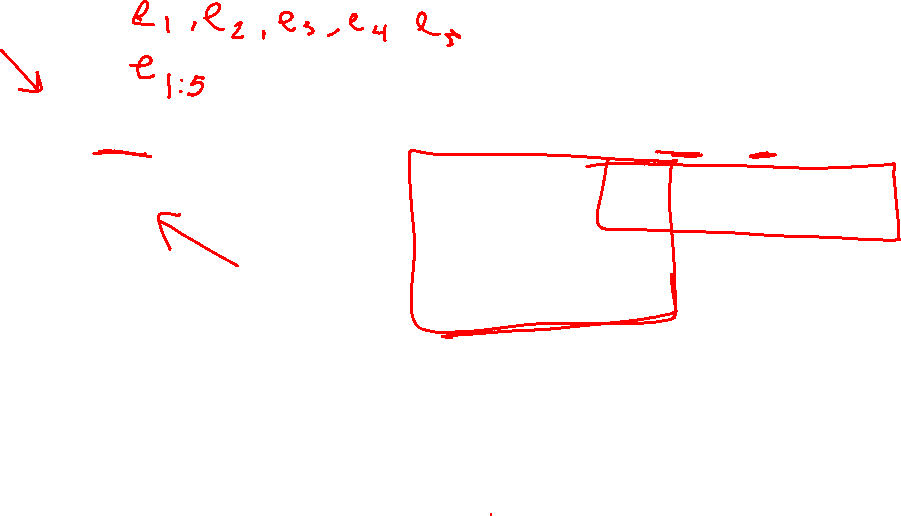 e₁, e₂, e₃, e₄ e₅
e₁:₅